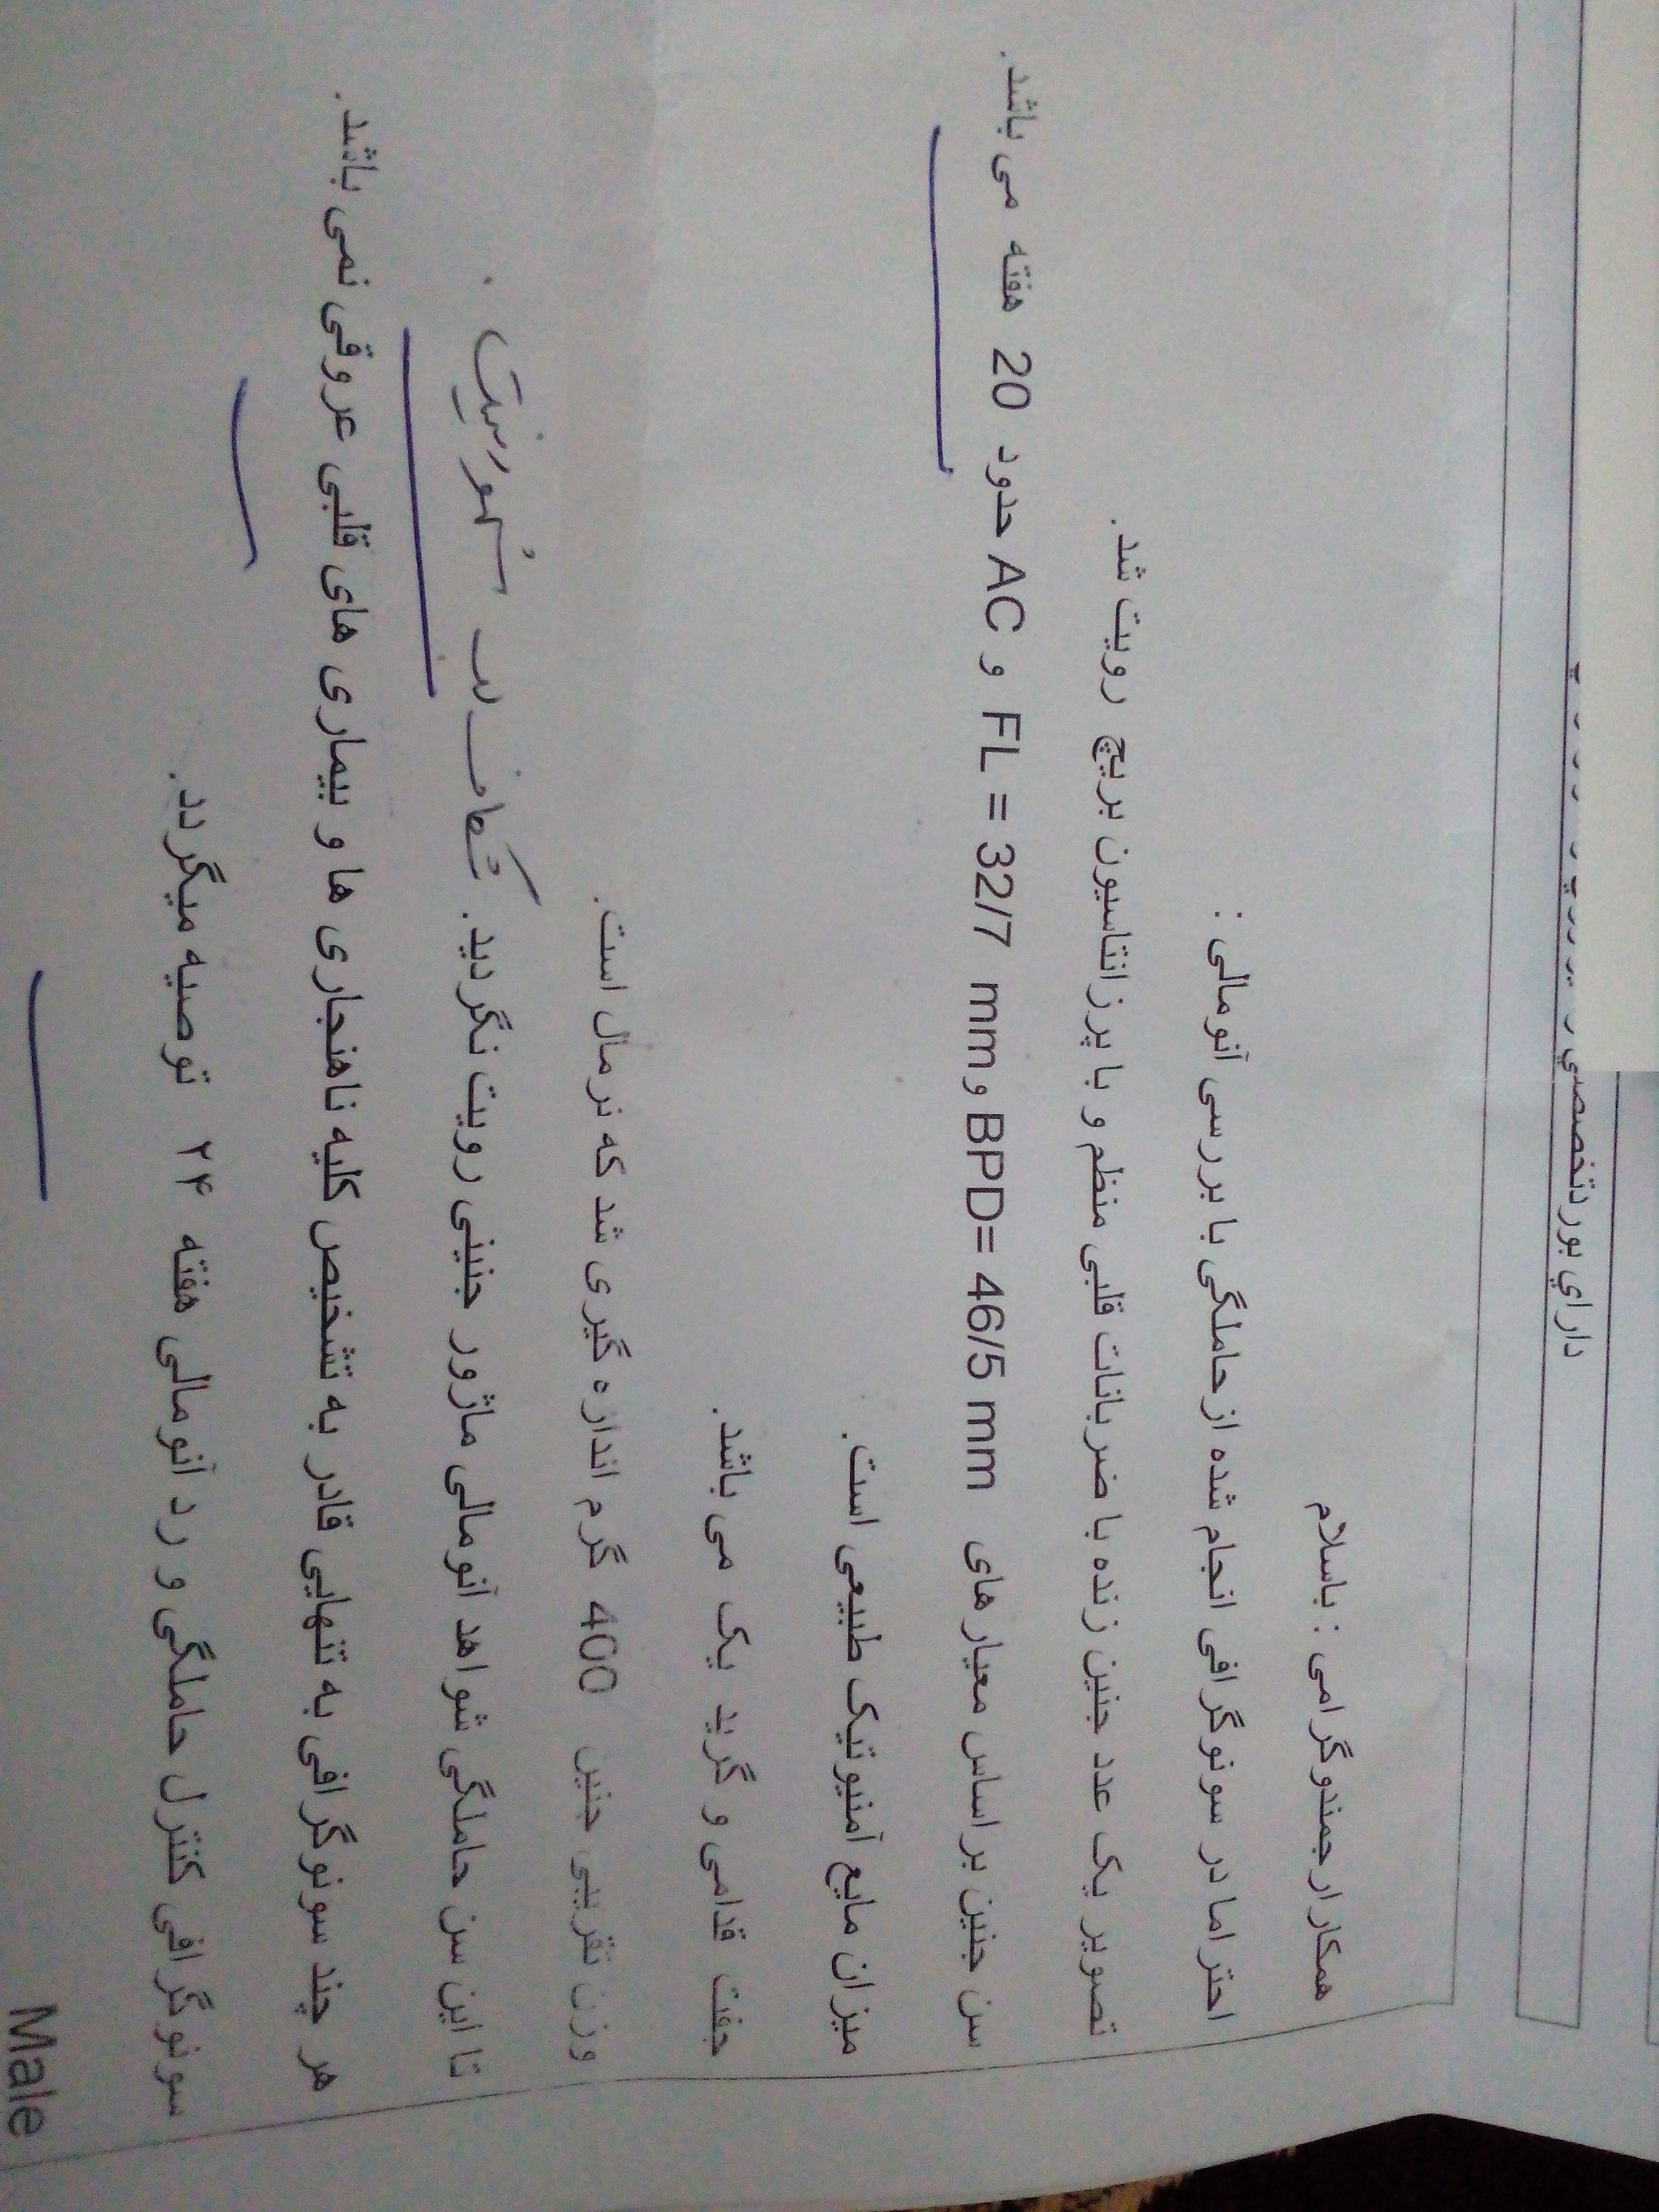 داراي بورد تخصصي
همکار ارجمند و گرامی : باسلام
احتراما در سونوگرافی انجام شده از حاملگی با بررسی آنومالی :
تصویر یک عدد جنین زنده با ضربانات قلبی منظم و با پرزانتاسیون بریچ رویت شد.
سن جنین بر اساس معیار های BPD= 46/5 mm و FL = 32/7 mm و AC حدود 20 هفته می باشد.
میزان مایع آمنیوتیک طبیعی است.
جفت قدامی و گرید یک می باشد.
وزن تقریبی جنین 400 گرم اندازه گیری شد که نرمال است.
تا این سن حاملگی شواهد آنومالی ماژور جنینی رویت نگردید.
هر چند سونوگرافی به تنهایی قادر به تشخیص کلیه ناهنجاری ها و بیماری های قلبی عروقی نمی باشد.
سونوگرافی کنترل حاملگی و رد آنومالی هفته ۲۴ توصیه میگردد.
Male